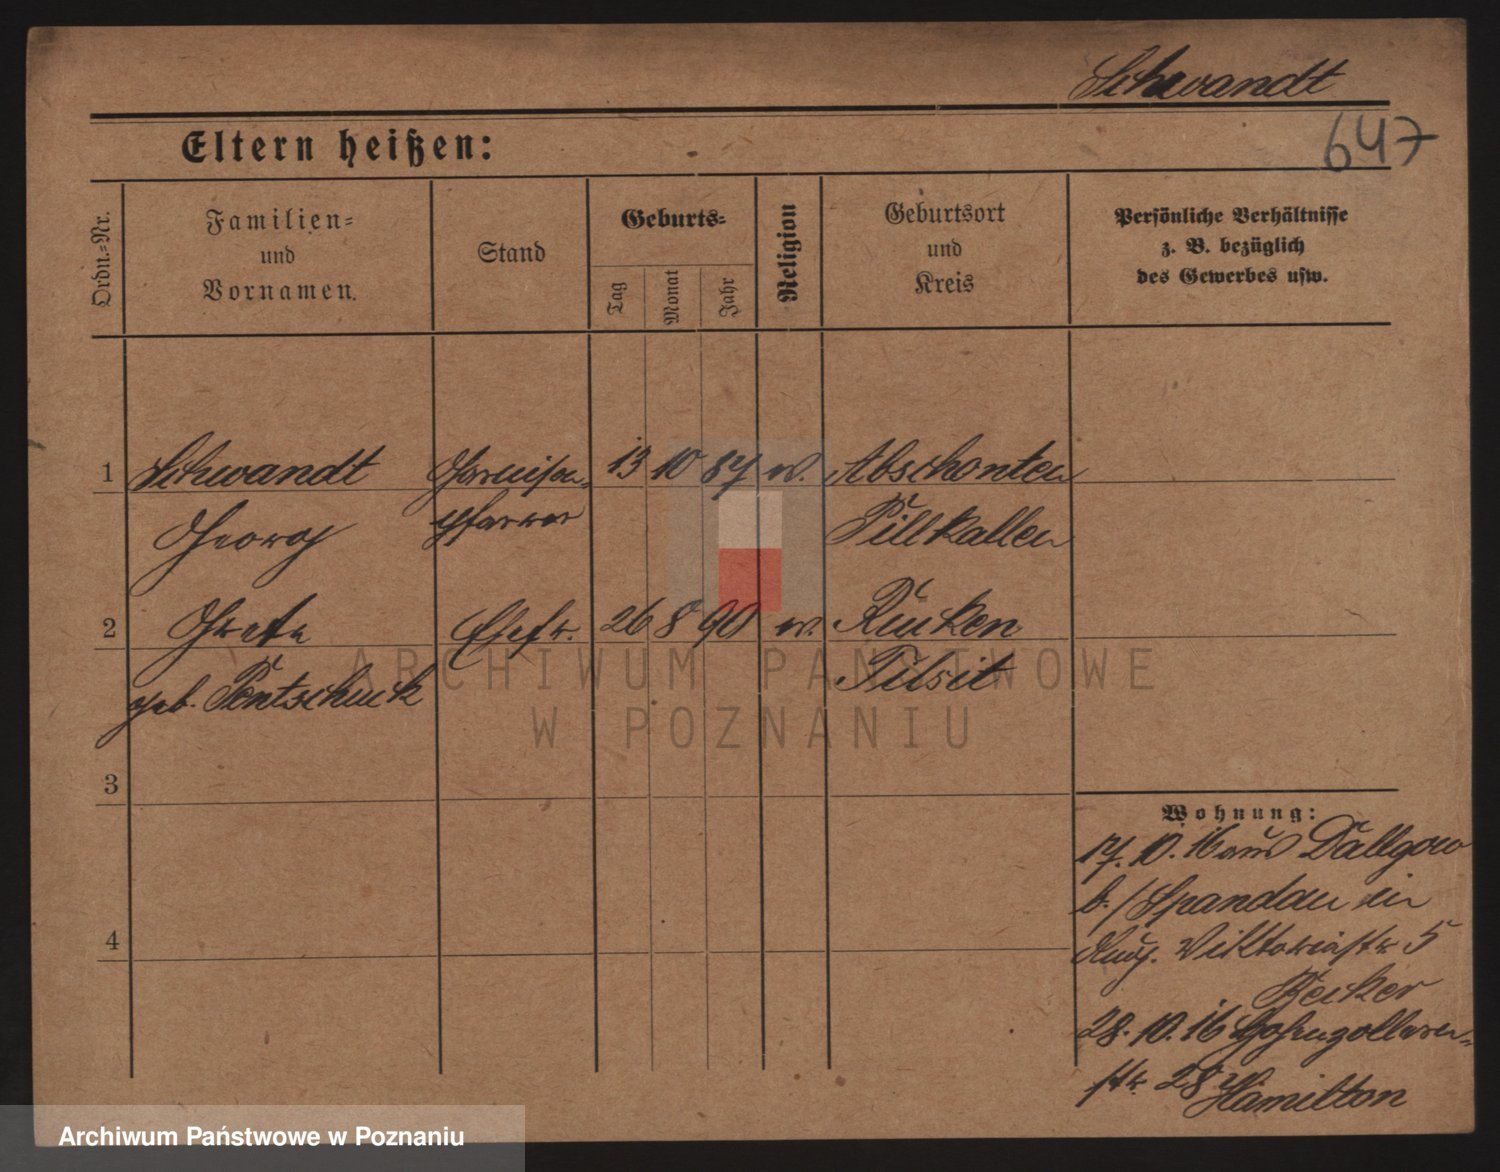 Schwandt
647
Eltern heißen:
Ordn.-Nr.
Familien-
und
Vornamen.
Stand
Geburts-
Tag
Monat
Jahr
Religion
Geburtsort
und
Kreis
Persönliche Verhältnisse
z. B. bezüglich
des Gewerbes usw.
1 Schwandt Garnison- 13 10 87 ev. Abschonten
Georg Pfarrer Pillkallen
2 Grete Ehefr. 26 8 90 ev. Rucken
geb. Pentschuck Tilsit
3
4
Wohnung:
17. 10. 16 aus Dallgow
b./Spandau in
Aug. Viktoriastr 5
Becker
28. 10. 16 Hohenzollern-
str. 28 Hamilton
ARCHIWUM PAŃSTWOWE
W POZNANIU
Archiwum Państwowe w Poznaniu